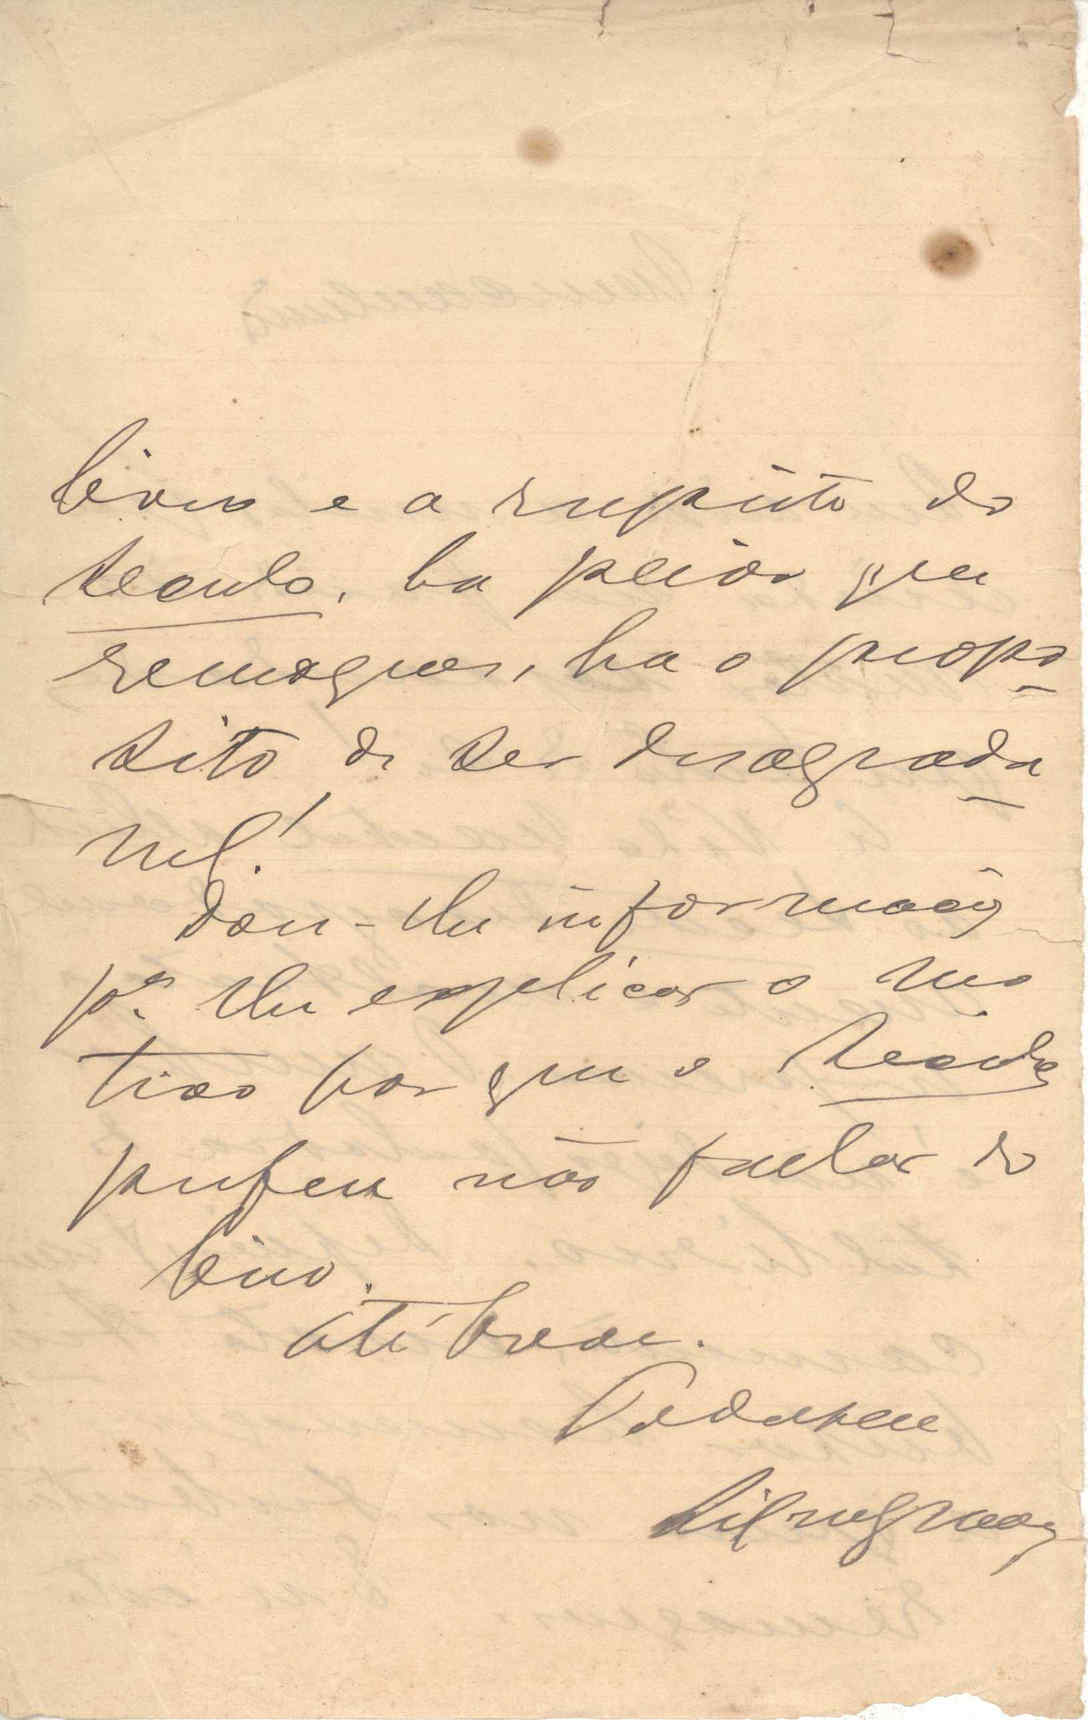 e a respeito do
Seculo, ha peior que
remoques, ha o propo
sito de ser desagrada
vel!
Dou-lhe informações
pª lhe explicar o mo
tivo por que o Seculo
prefere não fallar do
livro.
Até breve.
Todo seu